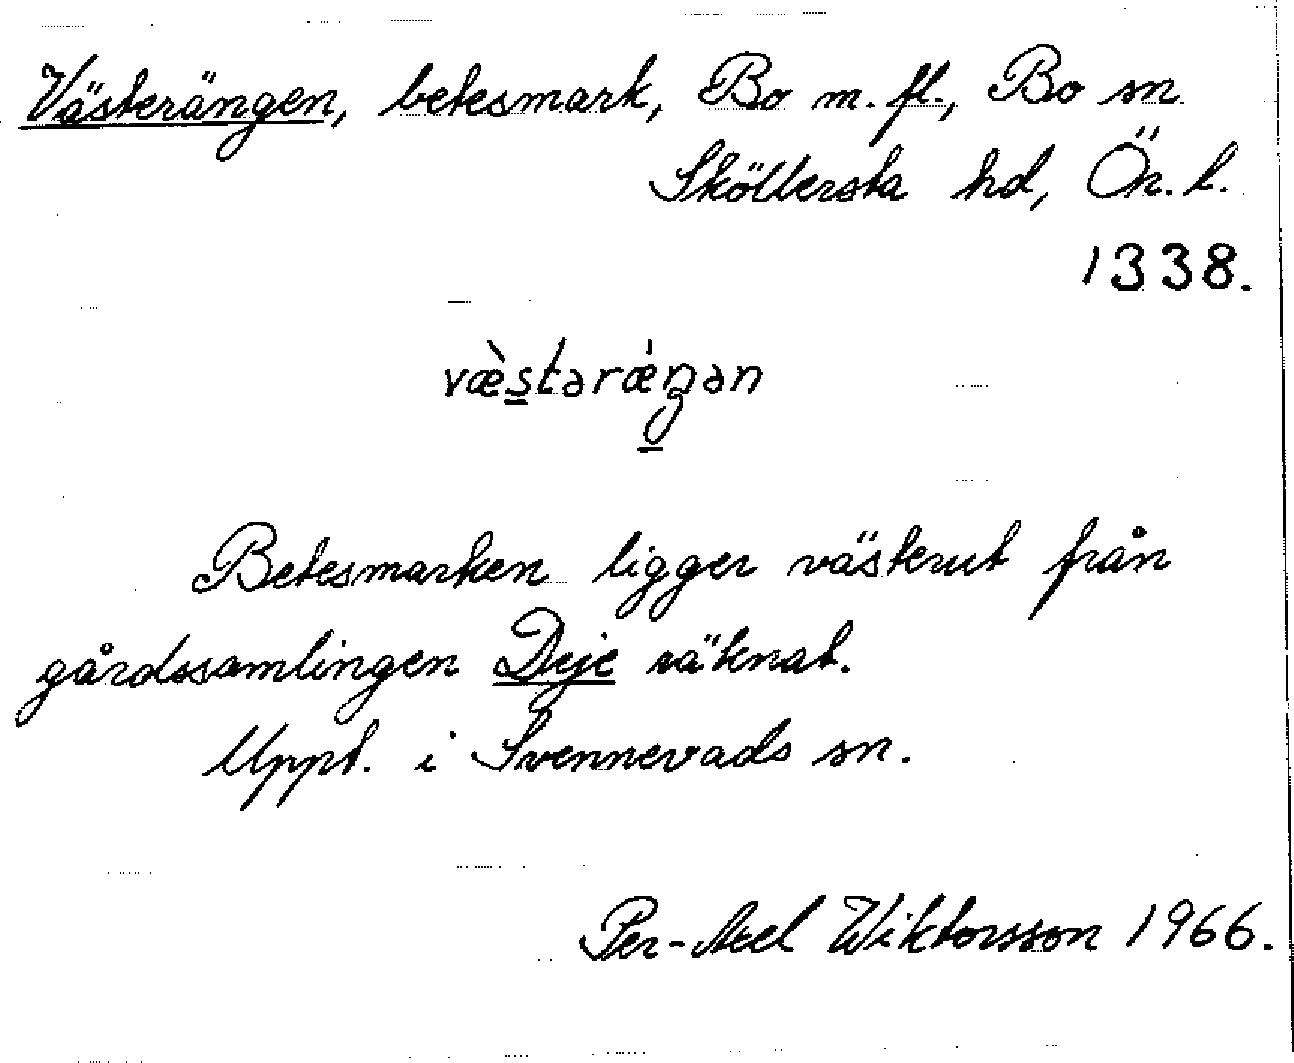 Västerängen, betesmark, Bo m. fl., Bo sn
Sköllersta hd, Ör. l.
1338.
væ̀s̲tərǽŋ̲ən
Betesmarken ligger västerut från
gårdssamlingen Deje räknat.
Uppt. i Svennevads sn.
Per-Axel Wiktorsson 1966.